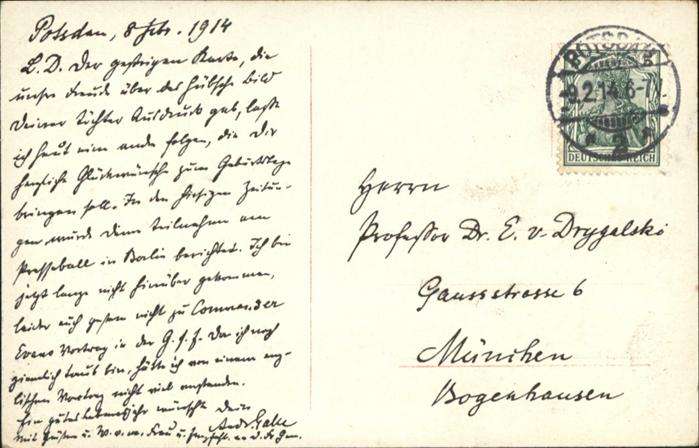 Potsdam, 8 Febr. 1914
L. D. Der gestrigen Karte, die
unsre Freude über das hübsche Bild
Deiner Töchter Ausdruck gab, lasse
ich heut eine andre folgen, die Dir
herzliche Glückwünsche zum Geburtstage
bringen soll. In den hiesigen Zeitun-
gen wurde Deine Teilnahme am
Presseball in Berlin berichtet. Ich bin
jetzt lange nicht hinüber gekommen,
leider auch gestern nicht zu Commander
Evans Vortrag in der G. f. E. Da ich noch
ziemlich taub bin, hätte ich von einem eng-
lischen Vortrag nicht viel verstanden.
Ein gutes Lebensjahr wünscht Dein
Mit Grüßen u. W. v. m. Frau u.
POTSDAM
-9.2.14.6-7
2
5
DEUTSCHES REICH
Herrn
Professor Dr. E. v. Drygalski
Gaussstrasse 6
München
Bogenhausen